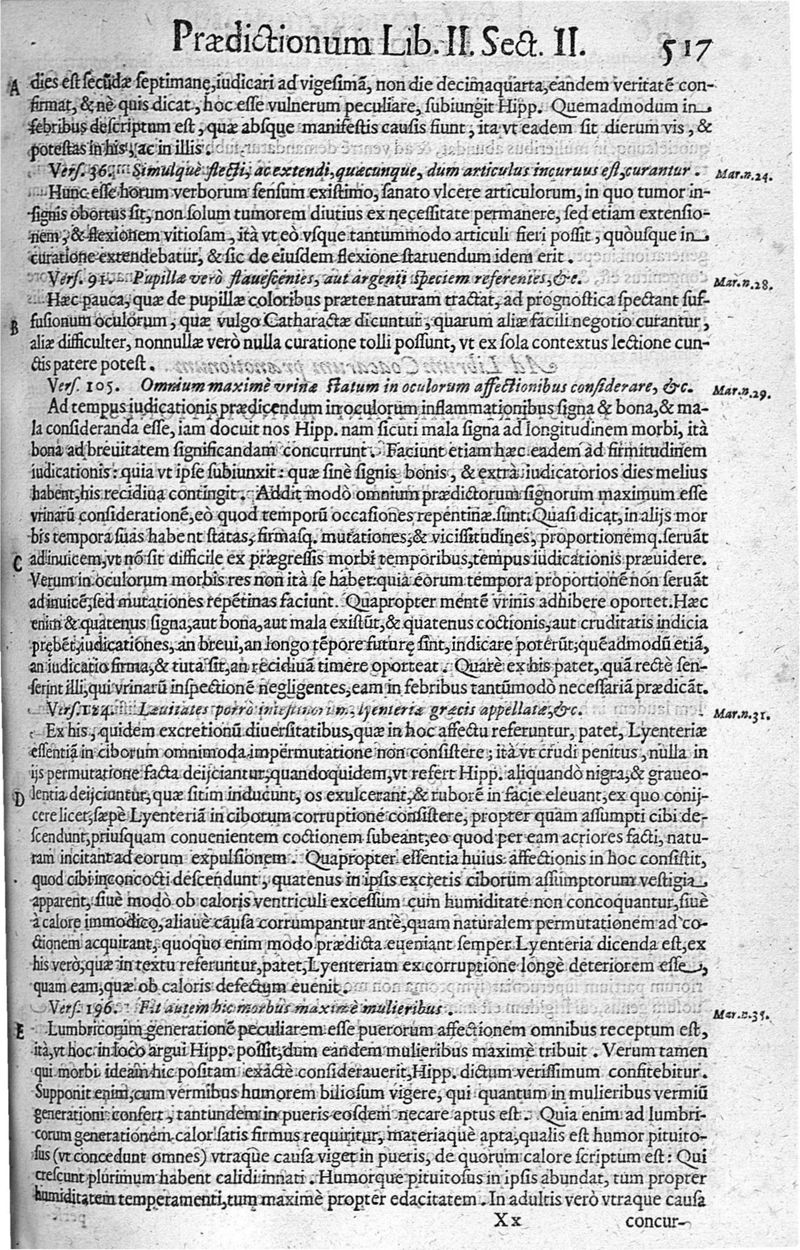 Prædictionum Lib. II. Sect. II. 517
A dies est secūdæ septimanę, iudicari ad vigesimā, non die decimaquarta, eandem veritatē con-
firmat, & nè quis dicat, hoc esse vulnerum peculiare, subiungit Hipp. Quemadmodum in
febribus descriptum est, quæ absque manifestis causis fiunt, ita vt eadem sit dierum vis, &
potestas in his, ac in illis.
Vers. 36. Simulquè flecti, ac extendi, quæcunque, dum articulus incuruus est, curantur. Mar. n. 24.
Hunc esse horum verborum sensum existimo, sanato vlcere articulorum, in quo tumor in-
signis obortus sit, non solum tumorem diutius ex necessitate permanere, sed etiam extensio-
nem, & flexionem vitiosam, ità vt eò vsque tantummodo articuli fieri possit, quòusque in
curatione extendebatur, & sic de eiusdem flexione statuendum idem erit.
Vers. 91. Pupillæ verò flauescentes, aut argenti speciem referentes, &c. Mar. n. 28.
Hæc pauca, quæ de pupillæ coloribus præter naturam tractat, ad prognostica spectant suf-
B fusionum oculorum, quæ vulgo Catharactæ dicuntur, quarum aliæ facili negotio curantur,
aliæ difficulter, nonnullæ verò nulla curatione tolli possunt, vt ex sola contextus lectione cun-
ctis patere potest.
Vers. 105. Omnium maximè vrinæ statum in oculorum affectionibus considerare, &c. Mar. n. 29.
Ad tempus iudicationis prædicendum in oculorum inflammationibus signa & bona, & ma-
la consideranda esse, iam docuit nos Hipp. nam sicuti mala signa ad longitudinem morbi, ità
bona ad breuitatem significandam concurrunt. Faciunt etiam hæc eadem ad firmitudinem
iudicationis: quia vt ipse subiunxit: quæ sinè signis bonis, & extrà iudicatorios dies melius
habent, his recidiua contingit. Addit modò omnium prædictorum signorum maximum esse
vrinarū considerationē, eò quod temporū occasiones repentinæ sunt. Quasi dicat, in alijs mor
bis tempora suas habent statas, firmasq. mutationes, & vicissitudines, proportionemq. seruāt
C adinuicem, vt nō sit difficile ex prægressis morbi temporibus, tempus iudicationis præuidere.
Verum in oculorum morbis res non ità se habet: quia eorum tempora proportionē non seruāt
adinuicē, sed mutationes repētinas faciunt. Quapropter mentē vrinis adhibere oportet. Hæc
enim & quatenus signa, aut bona, aut mala existūt, & quatenus coctionis, aut cruditatis indicia
prębēt, iudicationes, an breui, an longo tēpore futurę sint, indicare poterūt; quēadmodū etiā,
an iudicatio firma, & tuta sit, an recidiuā timere oporteat. Quarè ex his patet, quā rectè sen-
serint illi, qui vrinarū inspectionē negligentes, eam in febribus tantūmodò necessariā prædicāt.
Vers. 124. Læuitates porrò intestinorum, lyenteriæ græcis appellatæ, &c. Mar. n. 31.
Ex his, quidem excretionū diuersitatibus, quæ in hoc affectu referuntur, patet, Lyenteriæ
essentiā in ciborum omnimoda impermutatione non consistere; ità vt crudi penitus, nulla in
ijs permutatione facta deijciantur, quandoquidem, vt refert Hipp. aliquandò nigra, & graueo-
D lentia deijciuntur, quæ sitim inducunt, os exulcerant, & ruborē in facie eleuant, ex quo conij-
cere licet, sæpè Lyenteriā in ciborum corruptione consistere, propter quam assumpti cibi de-
scendunt, priusquam conuenientem coctionem subeant; eo quod per eam acriores facti, natu-
ram incitant ad eorum expulsionem. Quapropter essentia huius affectionis in hoc consistit,
quod cibi inconcocti descendunt, quatenus in ipsis excretis ciborum assumptorum vestigia
apparent, siuè modò ob caloris ventriculi excessum cum humiditate non concoquantur, siuè
à calore immodico, aliauè causa corrumpantur antè, quam naturalem permutationem ad co-
ctionem acquirant, quoquo enim modo prædicta eueniant semper Lyenteria dicenda est, ex
his verò, quæ in textu referuntur, patet, Lyenteriam ex corruptione longè deteriorem esse,
quam eam, quæ ob caloris defectum euenit.
Vers. 196. Fit autem hic morbus maximè mulieribus. Mar. n. 35.
E Lumbricorum generationē peculiarem esse puerorum affectionem omnibus receptum est,
ità, vt hoc in loco argui Hipp. possit, dum eandem mulieribus maximè tribuit. Verum tamen
qui morbi ideam hic positam exactè considerauerit, Hipp. dictum verissimum confitebitur.
Supponit enim, cum vermibus humorem biliosum vigere, qui quantum in mulieribus vermiū
generationi confert, tantundem in pueris eosdem necare aptus est. Quia enim ad lumbri-
corum generationem calor satis firmus requiritur, materiaquè apta, qualis est humor pituito-
sus (vt concedunt omnes) vtraque causa viget in pueris, de quorum calore scriptum est: Qui
crescunt plurimum habent calidi innati. Humorque pituitosus in ipsis abundat, tum propter
humiditatem temperamenti, tum maximè propter edacitatem. In adultis verò vtraque causa
Xx concur-